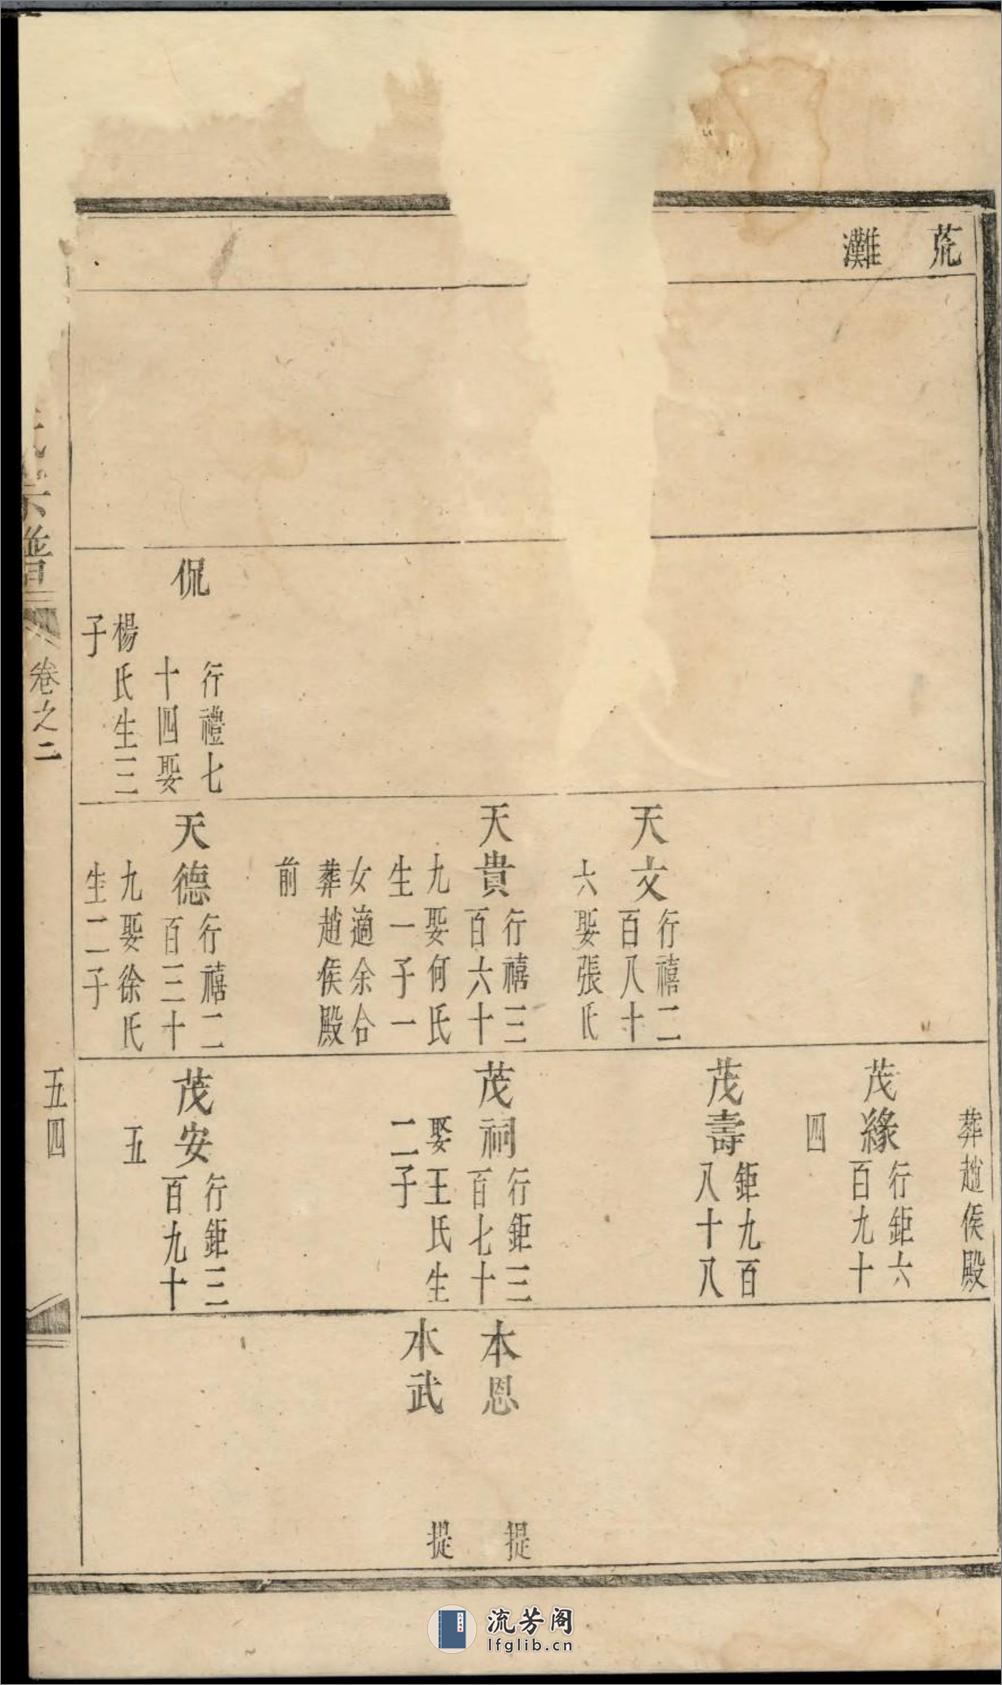 荒
灘
侃
行禮七
十四娶
楊氏生三
子
天文
行禧二
百八十
六娶張氏
天貴
行禧三
百六十
九娶何氏
生一子一
女適余合
葬趙侯殿
前
天德
行禧二
百三十
九娶徐氏
生二子
葬趙侯殿
茂緣
行鉅六
百九十
四
茂壽
鉅九百
八十八
茂祠
行鉅三
百七十
娶王氏生
二子
茂安
行鉅三
百九十
五
本恩
提
本武
提
氏宗譜
卷之二
五四
流芳阁
lfglib.cn